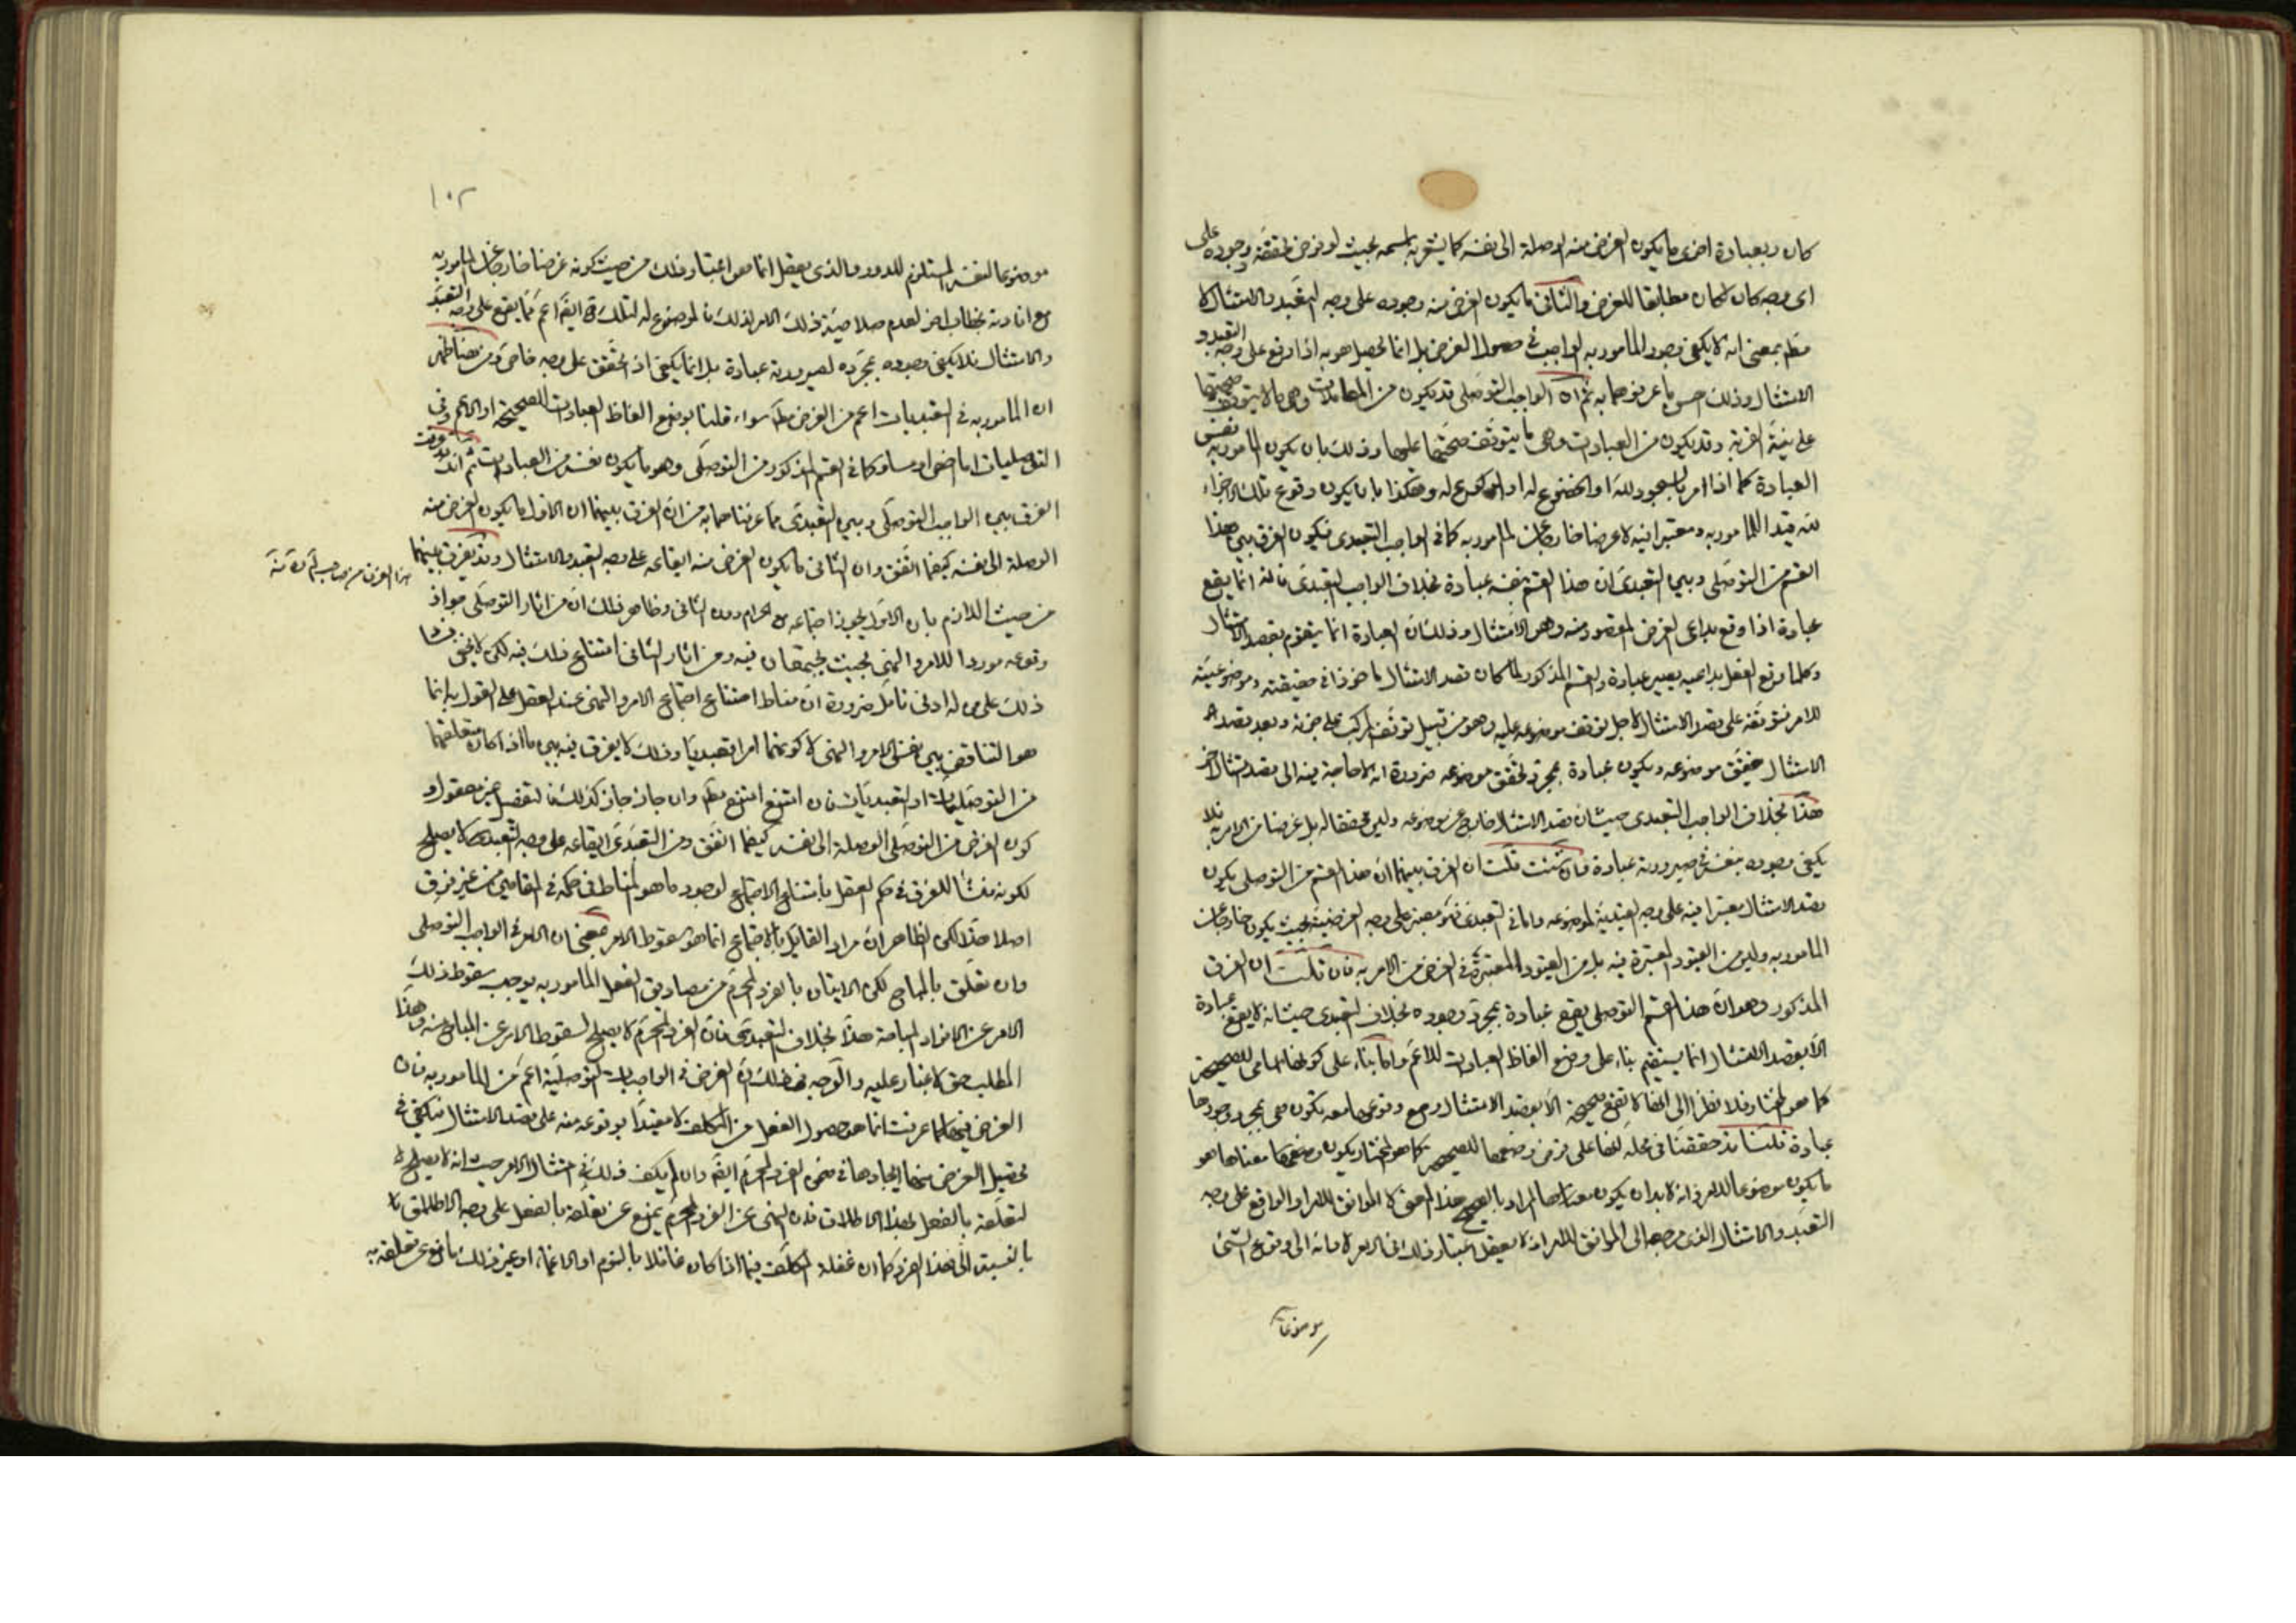 كان وبعبارة اخرى ما يكون الغرض منه الوصلة الى نفسه كما يشعر به اسمه بحيث لو فرض تحققه ووجوده على
اى وجه كان لكان مطابقا للغرض والثانى ما يكون الغرض منه وجوده على وجه التعبد والامتثال لا
مطم بمعنى انه لا يكفى وجود المامور به الواجب فى حصول الغرض بل انما يحصل هو به اذا وقع على وجه التعبد و
الامتثال وذلك حسن ما عرفوهما به ثم ان الواجب التوصلى قد يكون من المعاملات وهى ما لا يتوقف صحتها
على نية القربة وقد يكون من العبادات وهى ما يتوقف صحتها عليها وذلك بان يكون المامور به نفس
العبادة كما اذا امر بالسجود لله او الخضوع له او الركوع له وهكذا ما يكون وقوع تلك الاجزاء
لله قيدا للمامور به ومعتبرا فيه لا غرضا خارجا عن المامور به كما فى الواجب التعبدى فيكون الفرق بين هذا
القسم من التوصلى وبين التعبدى ان هذا القسم بنفسه عبادة بخلاف الواجب التعبدى فانه انما يقع
عبادة اذا وقع بداعى الغرض المقصود منه وهو الامتثال وذلك ان العبادة انما يتقوم بقصد الامتثال
وكلما وقع الفعل بداعيه يصير عبادة والقسم المذكور لما كان قصد الامتثال ماخوذا فى حقيقته وموضوعيته
للامر فتوقفه على قصد الامتثال لاجل توقف موضوعه عليه وهو من قبيل توقف المركب على جزئه وبعد قصد
الامتثال يتحقق موضوعه ويكون عبادة بمجرد تحقق موضوعه ضرورة انه لا حاجة فيه الى قصد امتثال اخر
هذا بخلاف الواجب التعبدى حيث ان قصد الامتثال خارج عن موضوعه وليس محققا له بل غرضا من الامر به فلا
يكفى وجوده بنفسه فى صيرورته عبادة فان شئت قلت ان الفرق بينهما ان هذا القسم من التوصلى يكون
قصد الامتثال معتبرا فيه على وجه القيدية لموضوعه واما فى التعبدى فهو معتبر على وجه الغرضية بحيث يكون خارجا عن
المامور به وليس من القيود المعتبرة فيه بل من القيود المعتبرة فى الغرض من الامر به فان قلت ان الفرق
المذكور وهو ان هذا القسم التوصلى يقع عبادة بمجرد وجوده بخلاف التعبدى حيث انه لا يقع عبادة
الا بقصد الامتثال انما يستقيم بناء على وضع الفاظ العبادات للاعم واما بناء على كونها اسامى للصحيح
كما هو المختار فلا نظرا الى انها لا تقع صحيحة الا بقصد الامتثال ومع وقوعها معه تكون هى بمجرد وجودها
عبادة قلنا قد حققنا فى محله انها على فرض وضعها للصحيح كما هو المختار يكون وضعها معناها هو
ما يكون موضوعا للامر فانه لا بد ان يكون معناها المراد بالصحيح هذا المعنى لا الموافق للامر او الواقع على وجه
التعبد والامتثال الذى مرجعها الى الموافق للامر اذ لا يعقل اعتبار ذلك فى الامر لا فانه الى وقوع الشئ
موضوعا
١٠٢
موضوعا لنفسه المستلزم للدور والذى يعقل انما هو اعتبار ذلك من حيث كونه غرضا خارجا عن المامور به
مع افادته بخطاب اخر لعدم صلاحية ذلك الامر لذلك فالموضوع له لتلك ايضا اعم مما يقع على وجه التعبد
والامتثال فلا يكفى وجوده بمجرده لصيرورته عبادة بل انما يكفى اذ تحقق على وجه خاص ومن هنا ظهر
ان المامور به فى التعبديات اعم من الغرض مطم سواء قلنا بوضع الفاظ العبادات للصحيحة او الاعم وفى
التوصليات اما اخص او مساو كما فى القسم المذكور من التوصلى وهو ما يكون نفسه من العبادات ثم انك قد عرفت
الفرق بين الواجب التوصلى وبين التعبدى مما عرفناهما به من ان الفرق بينهما ان الاول ما يكون الغرض منه
الوصلة الى نفسه كيفما اتفق وان الثانى ما يكون الغرض منه ايقاعه على وجه التعبد والامتثال وقد يفرق بينهما
هذا الفرق من صاحب
من حيث اللازم بان الاول يجوز اجتماعه مع الحرام دون الثانى وظاهر ذلك ان من اثار التوصلى جواز
وقوعه موردا للامر والنهى بحيث يجتمعان فيه ومن اثار الثانى امتناع ذلك فيه لكن لا يخفى فساد
ذلك على من له ادنى تامل ضرورة ان مناط امتناع اجتماع الامر والنهى عند العقل على القول به انما
هو التناقض بين نفسى الامر والنهى لا كونهما امرا تعبديا وذلك لا يفرق فيه بين ما اذا كان متعلقهما
من التوصليات او التعبديات فان امتنع امتنع مطم وان جاز جاز كذلك فالتفصيل غير معقول و
كون الغرض من التوصلى الوصلة الى نفسه كيفما اتفق ومن التعبدى ايقاعه على وجه التعبد لا يصلح
لكونه منشأ للفرق فى حكم العقل بامتناع الاجتماع لوجود ما هو المناط فى حكمه فى المقامين من غير فرق
اصلا هذا لكن الظاهر ان مراد القايل بالاجتماع انما هو سقوط الامر بمعنى ان الامر فى الواجب التوصلى
وان تعلق بالمباح لكن الاتيان بالفرد المحرم من مصاديق الفعل المامور به يوجب سقوط ذلك
الامر عن الافراد المباحة هذا بخلاف التعبدى فان الفرد المحرم لا يصلح لسقوط الامر عن المباح منه وهذا
المطلب حق لا غبار عليه والوجه فى ذلك ان الغرض فى الواجبات التوصلية اعم من المامور به فان
الغرض فيها كما عرفت انما هو حصول الفعل من المكلف لا مقيدا بوقوعه منه على قصد الامتثال فيكفى فى
تحصيل الغرض منها ايجادها فى ضمن الفرد المحرم ايضا وان لم يكف ذلك فى امتثال الامر حيث انه لا يصلح
لتعلقه بالفعل بهذا الاطلاق فان النهى عن الفرد المحرم يمنع عن تعلقه بالفعل على وجه الاطلاق
بالنسبة الى هذا الفرد كما ان غفلة المكلف فيما اذا كان غافلا بالنوم او الاغماء او غير ذلك مانع عن تعلقه به